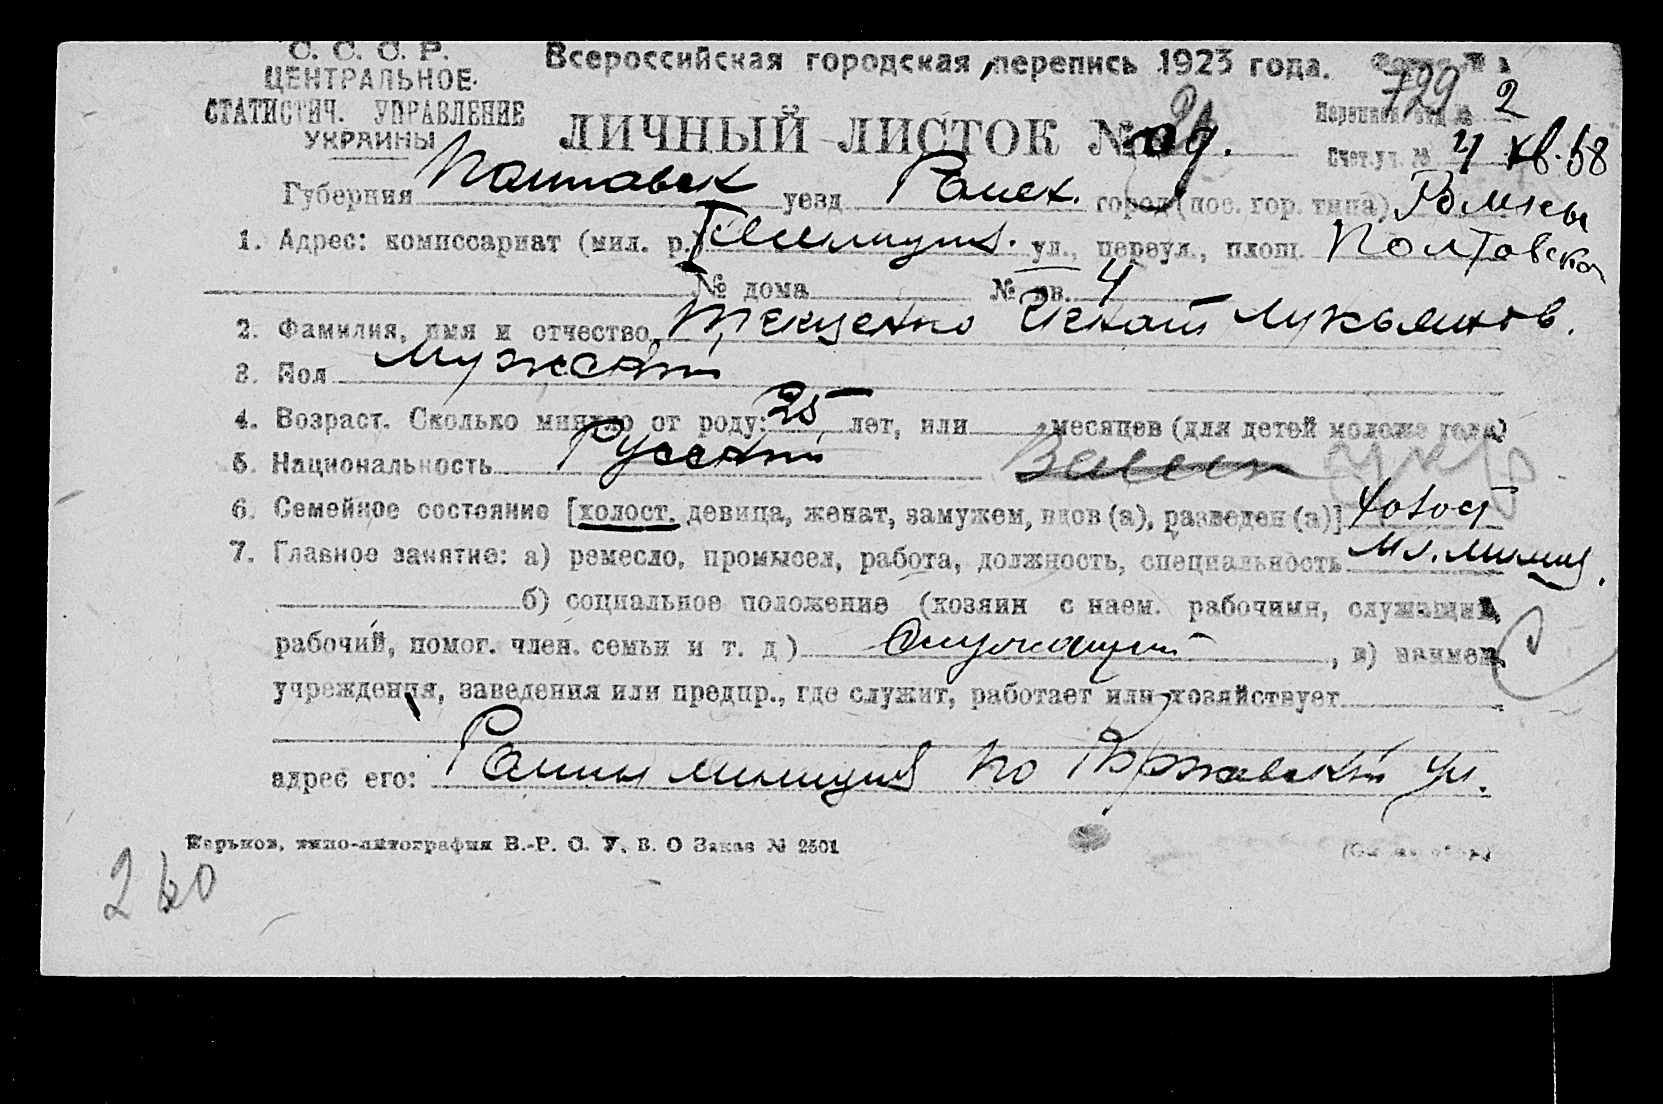 С. С. С. Р. Всероссийская городская перепись 1923 года.
ЦЕНТРАЛЬНОЕ 729
СТАТИСТИЧ. УПРАВЛЕНИЕ 2
УКРАИНЫ ЛИЧНЫЙ ЛИСТОК №
Счет.уч. № 4 кв. 58
Губерния Полтавск уезд Ромен. город (пос. гор. типа) Ромны
1. Адрес: комиссариат (мил. р.) ул., переул., площ. Полтавская
№ дома № кв. 4
2. Фамилия, имя и отчество Лукьянов.
3. Пол мужской
4. Возраст. Сколько минуло от роду: 25 лет, или месяцев (для детей моложе года)
5. Национальность Русский укр
6. Семейное состояние [холост. девица, женат, замужем, вдов (а), разведен (а)] холост
7. Главное занятие: а) ремесло, промысел, работа, должность, специальность мл. милиц.
б) социальное положение (хозяин с наем. рабочими, служащий,
рабочий, помог. член. семьи и т. д) Служащий, в) наимен.
учреждения, заведения или предпр., где служит, работает или хозяйствует
адрес его: милиция по ул.
Харьков, типо-литография В.-Р. С. У. В. О Заказ № 2501